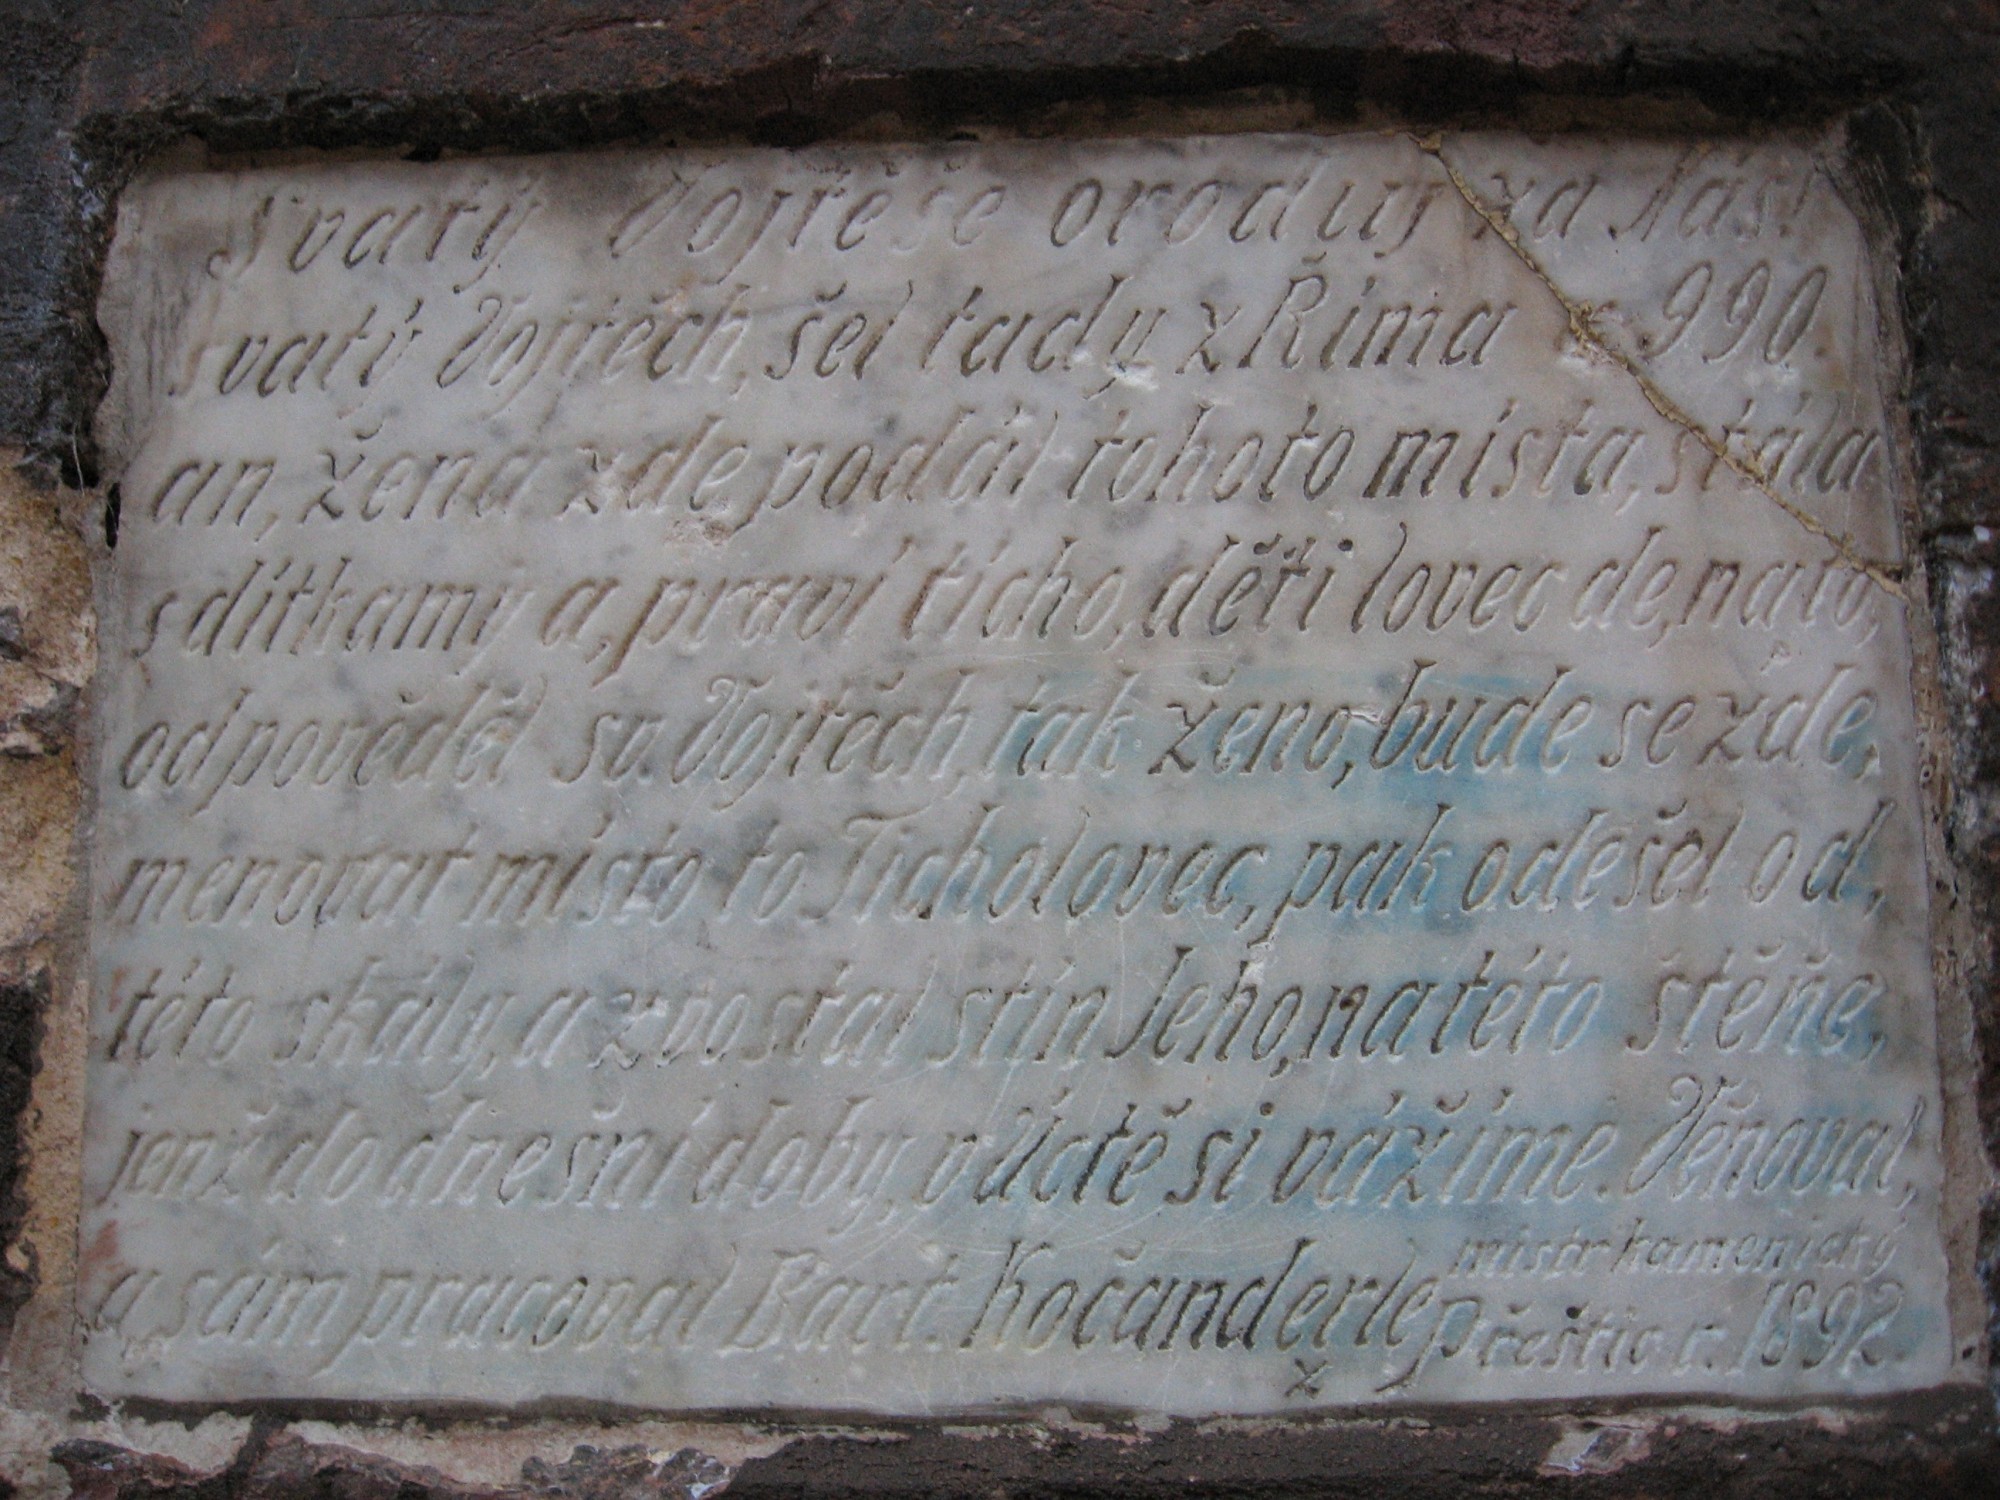 Svatý Vojtěše oroduj za Nás!
svatý Vojtěch, šel tady z Říma r. 990.
an, žena zde podál tohoto místa, stála
s dítkamy a, praví ticho, děti lovec de, nato,
odpověděl sv. Vojtěch, tak ženo, bude se zde,
menovat místo to Ticholovec, pak odešel od,
této skály, a zvostal stín Jeho, na této stěňe,
jenž do dnešní doby, v Úctě si vážíme. Věňoval,
a, sám pracoval Bart. Kočanderle mistr kamenický
z Přeštic r. 1892.